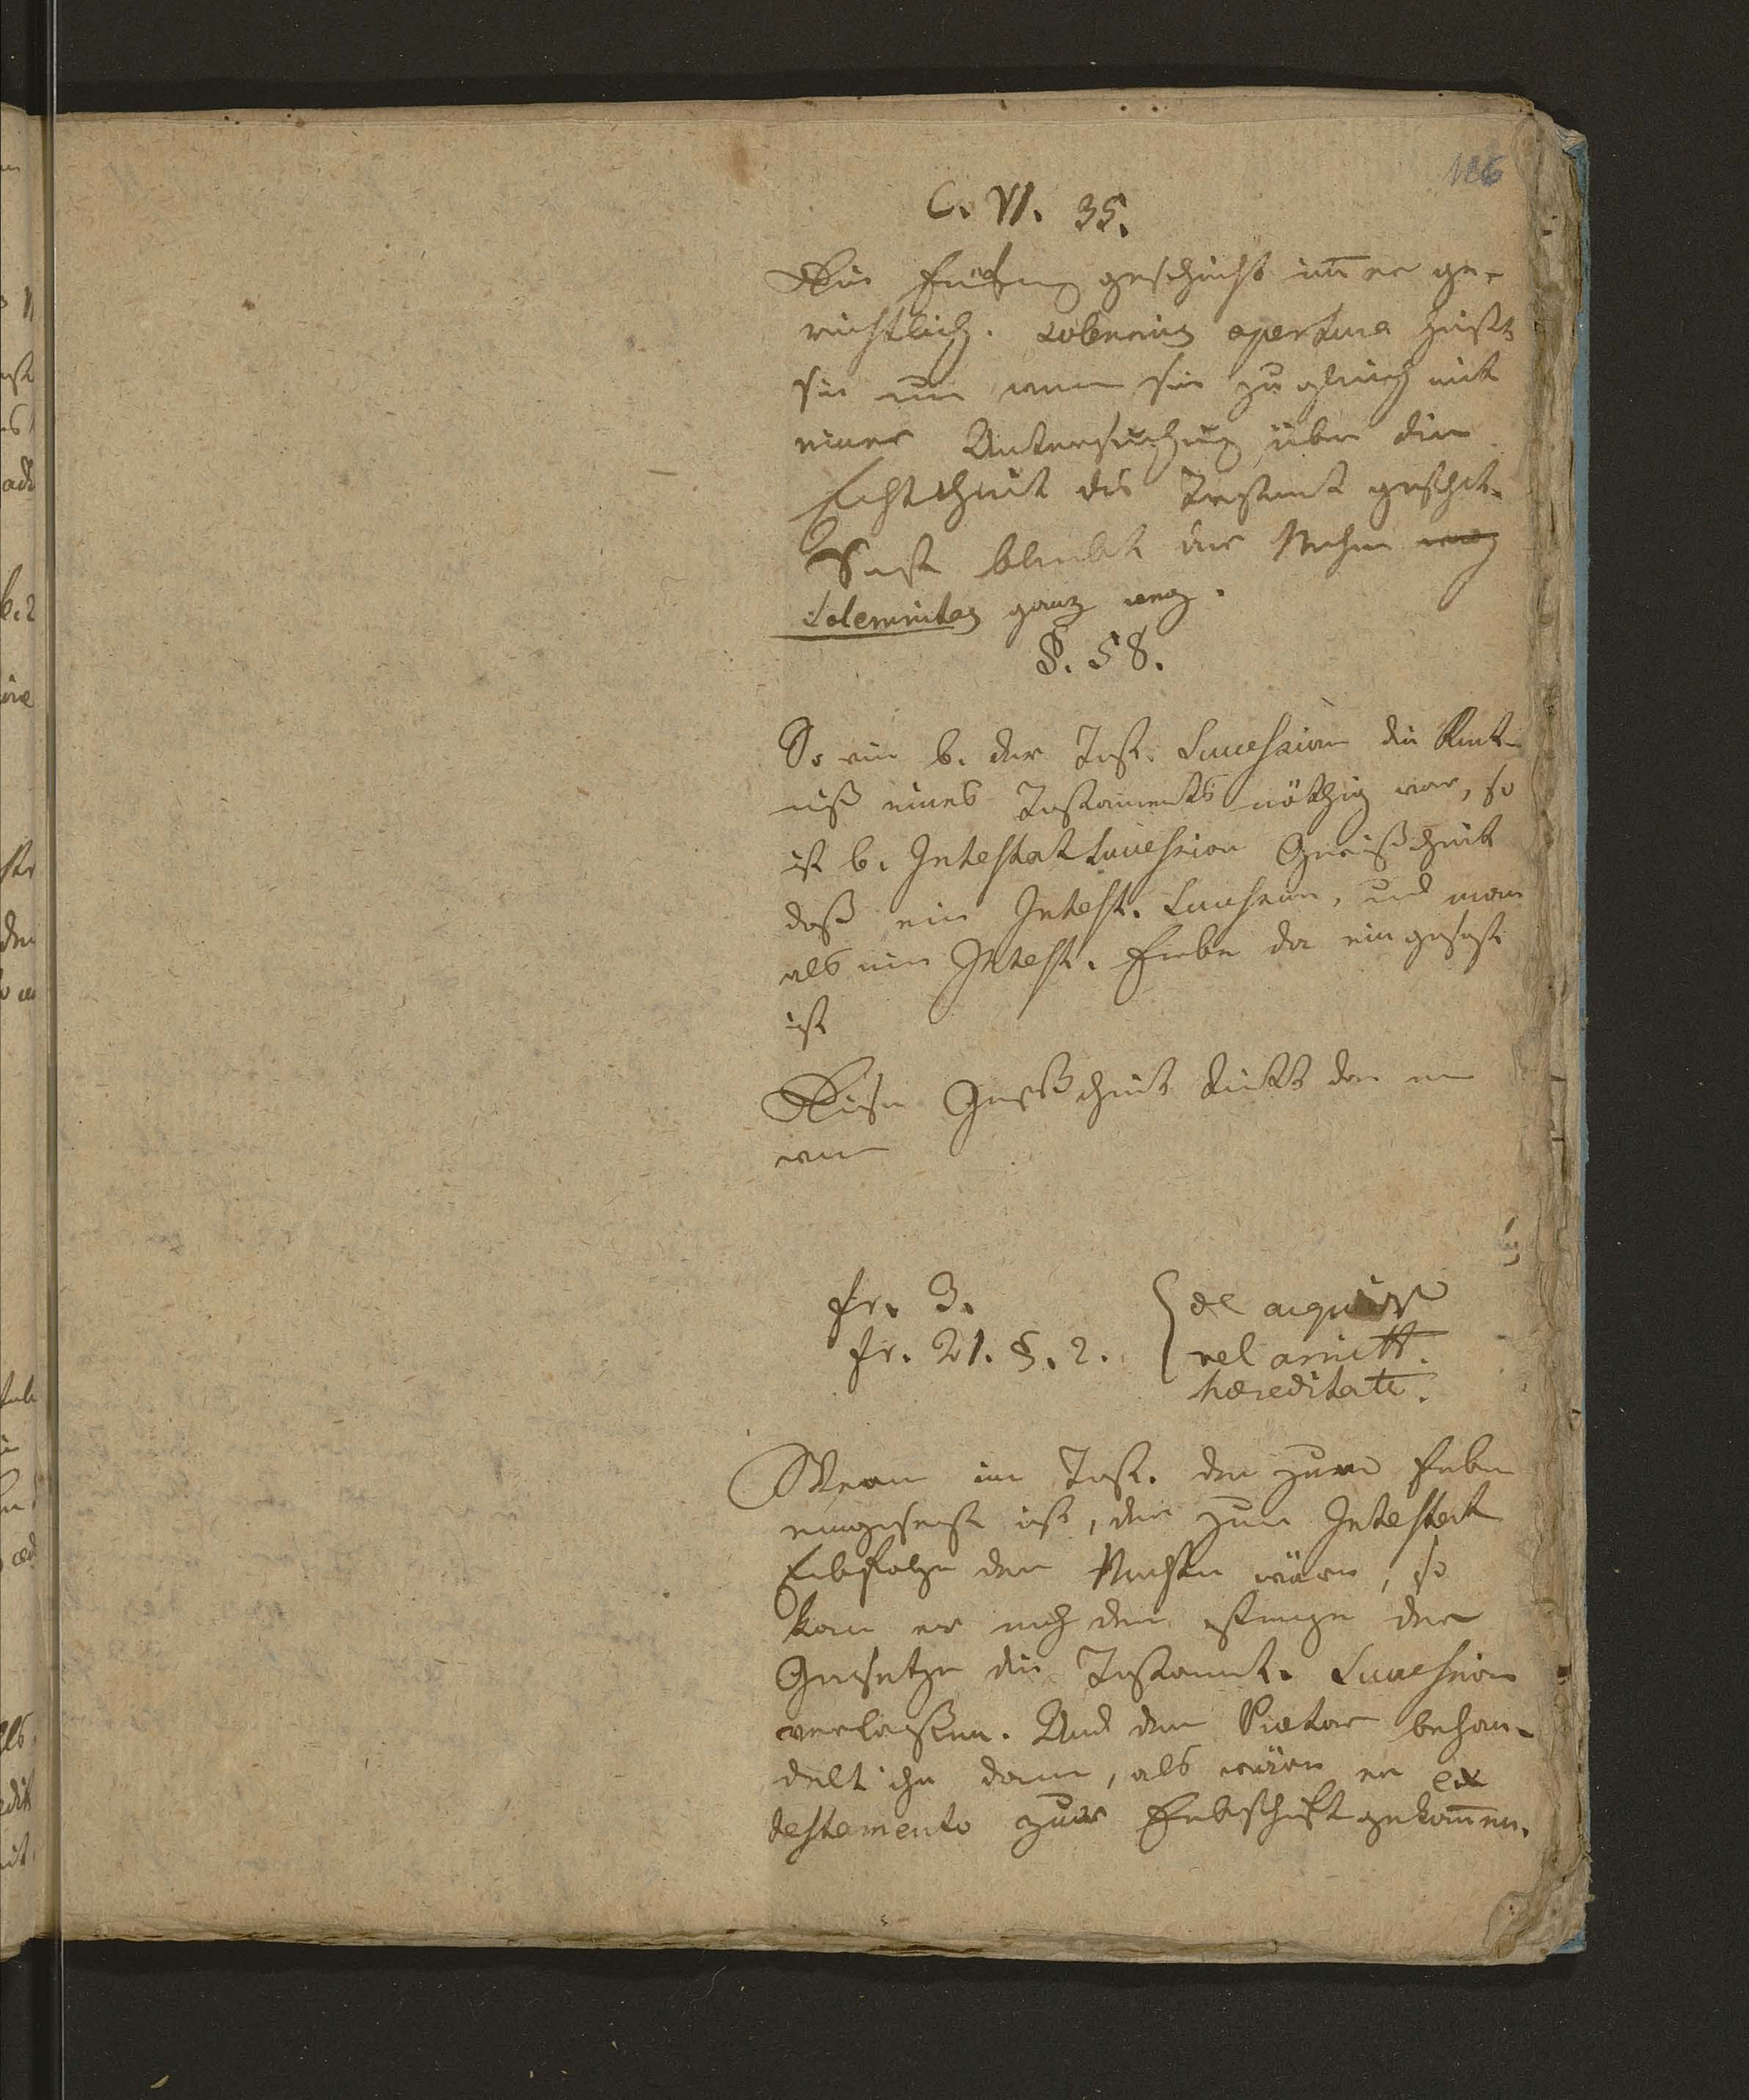 186
C. VI. 35.
Die Eröfnung geschieht im̄er ge-
richtlich. solennis apertura heißt
sie nur wenn sie zugleich mit
einer Untersuchung über die
Echtheit des Testaments geschieht.
Sonst bleibt der Nahme weg
Solennitas ganz weg.
§. 58.
So wie b. der Test. Succession die Kent-
niß eines Testaments nöthig war, so
ist b. Intestat Succession Gewißheit
daß eine Intest. Succession, und man
als ein Intest. Erbe da eingesezt
ist
Diese Gewißheit tritt dan ein
wenn
fr. 3. de acquir
fr. 21. §. 2. vel amitt.
hæreditate.
Wenn im Test. der zum Erben
eingesezt ist, der zur Intestat
Erbfolge der Nächste wäre, so
kan er nach der Strenge der
Gesetze die Testament. Succession
verlaßen. Und der Prætor behan-
delt ihn dann, als wäre er ex
testamento zur Erbschaft gekom̄en.